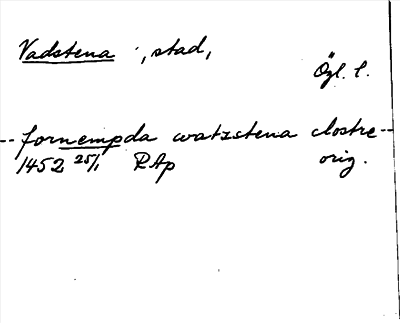 Vadstena , stad,
Ögl. l.
-- fornempda watzstena clostre --
1452 25/1 RAp orig.